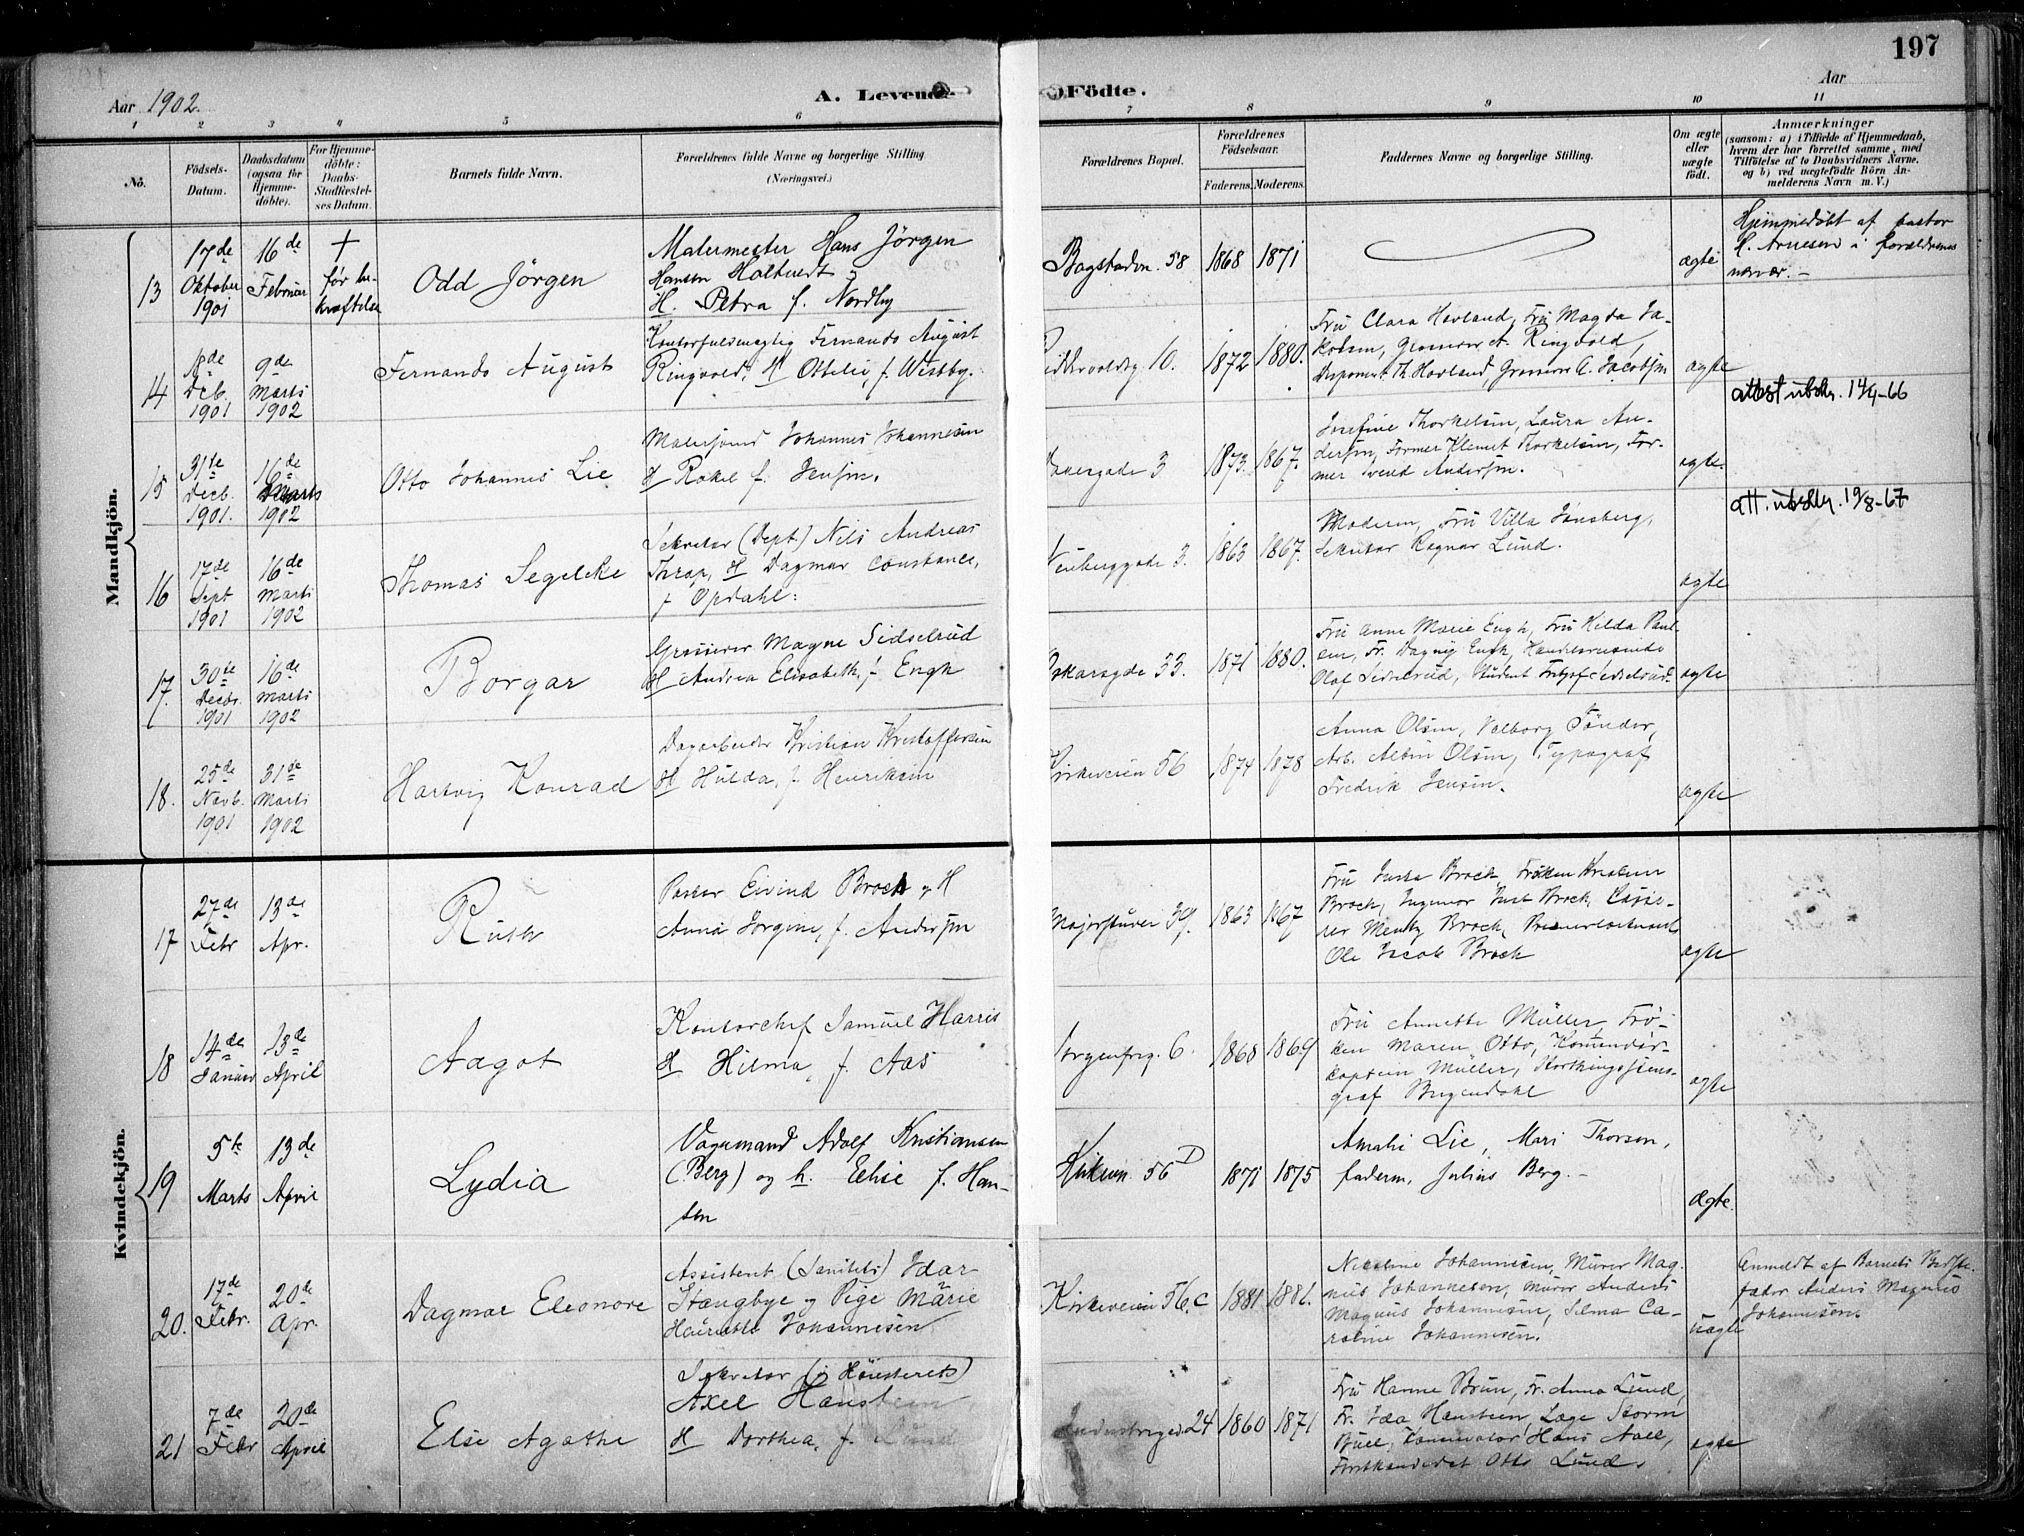 197
Aar 1902.
A. Levende
Födte.
Aar
1 2 3 4 5 6 7 8 9 10 11
No.
Födsels-Datum.
Daabsdatum (ogsaa for Hjemme-döbte).
For Hjemme-döbte: Daabs-Stadfæstel-ses Datum.
Barnets fulde Navn.
Forældrenes fulde Navne og borgerlige Stilling
(Næringsvei.)
Forældrenes Bopæl.
Forældrenes Födselsaar.
Faderens. Moderens.
Faddernes Navne og borgerlige Stilling.
Om ægte eller uægte födt.
Anmærkninger
(saasom: a) i Tilfælde af Hjemmedaab, hvem der har forrettet samme, med Tilföielse af to Daabsvidners Navne, og b) ved uægtefödte Börn An-melderens Navn m. V.)
Mandkjön.
13
17de Oktober 1901
16de Februar
+ før be-kræftelse
Odd Jörgen
Malermester Hans Jörgen
Hansen Holtvedt
H. Petra f. Nordby
Bogstadvn. 58
1868 1871
ægte
Hjemmedøbt af pastor
H. Arnesen i forældrenes
nærvær. -
14
18de Deb. 1901
9de Marts 1902
Fernando August
Kontorfuldmægtig Fernando August
Ringvold, H Ottilie, f. Westby.
10.
1872 1880.
Fru Clara Hovland, Fru Magda Ja-
kobsen, Grosserer A. Ringvold,
Disponent Th. Hovland, Grosserer A. Jacobsen
ægte
attest utskr. 14/4-66
15
31te Decb. 1901.
16de Marts 1902
Otto Johannes Lie
Malersvend Johannes Johannesen
H Rakel f. Jensen.
3
1873. 1867.
Josefine Thorkelsen, Laura An-
dersen, Former Klemet Thorkelsen, For-
mer Svend Andersen.
ægte.
att. utskr. 19/8-67
16
17de Sept 1901
16de Marts 1902
Thomas Segelcke
Sekretær (Dept) Nils Andreas
Thrap, H Dagmar Constance,
f Opdahl.
3.
1863 1867.
Moderen, Fru Villa Jonsberg,
Sekretær Ragnar Lund.
ægte
17.
30te Decbr. 1901
16de Marts 1902
Borgar
Grosserer Magne Sidselrud
H Andrea Elisabeth, f. Engh
33.
1871 1880.
Fru Anne Marie Engh, Fru Hilda Paul-
sen, Fr. Dagny Engh, Handelsreisende
Olaf Sidselrud, Student Fritjof Sidselrud.
ægte
18.
25de Novb. 1901
31te Marts 1902
Hartvig Konrad
Dagarbeider Kristian Kristoffersen
H Hulda, f Henriksen
Kirkeveien 56
1874 1878
Anna Olsen, Valborg Tönder,
Arb. Albin Olsen, Typograf
Fredrik Jensen.
ægte
Kvindekjön.
17
27de Febr
13de Apr.
Ruth
Pastor Eivind Broch og H
Anna Jorgine, f. Andersen
Majorstuvei 39.
1863 1867
Fru Justa Broch, Frøken Kristine
Broch, Ingeniør Just Broch, Casse-
rer Mentz Broch, Premierløitnant
Ole Jacob Broch
ægte
18
14de Januar
13de April
Aagot
Kontorchef Samuel Harris
H Hilma, f. Aas
Sorgenfrig. 6.
1868 1869
Fru Annette Müller, Frö-
ken Maren Otto, Komandör-
kaptein Müller, Storthingssteno-
graf Brigendahl
ægte
19
5te Marts
13de April
Lydia
Vognmand Adolf Kristiansen
(Berg) og h. Elise f. Han-
sen
Kirkevn. 56D
1871 1875
Amalie Lie, Mari Thorsen,
faderen, Julius Berg. -
ægte.
20.
17de Febr.
20de Apr.
Dagmar Eleonore
Assistent (Sanitets) Idar
Stangbye og Pige Marie
Henriette Johannesen
Kirkeveien 56.c
1881 1881.
Nicoline Johannesen, Murer Mag-
nus Johannesen, Murer Anders
Magnus Johannesen, Selma Ca-
roline Johannesen.
uægte
Anmeldt af Barnets Bedste-
fader Anders Magnus
Johannesen.
21
7de Febr
20de April
Else Agathe
Sekretær (i Höiesteret)
Axel Hansteen
H Dorthea, f. Lund
Industriged. 24
1860 1871
Fru Hanne Brun, Fr. Anna Lund,
Fr. Ida Hansteen, Lage Storm
Bull, Konservator Hans Aall,
Forstkandidat Otto Lund.
ægte